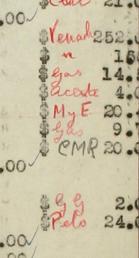 21.0
.00 $ Venado 252.
$ " 15
$ Gas 14.
$ aceite 4.0
$ M y E 20.
$ Gas 9.
.00 $ CMR 20.0
$ G G 2.0
$ Pelo 24.0
.00
.00